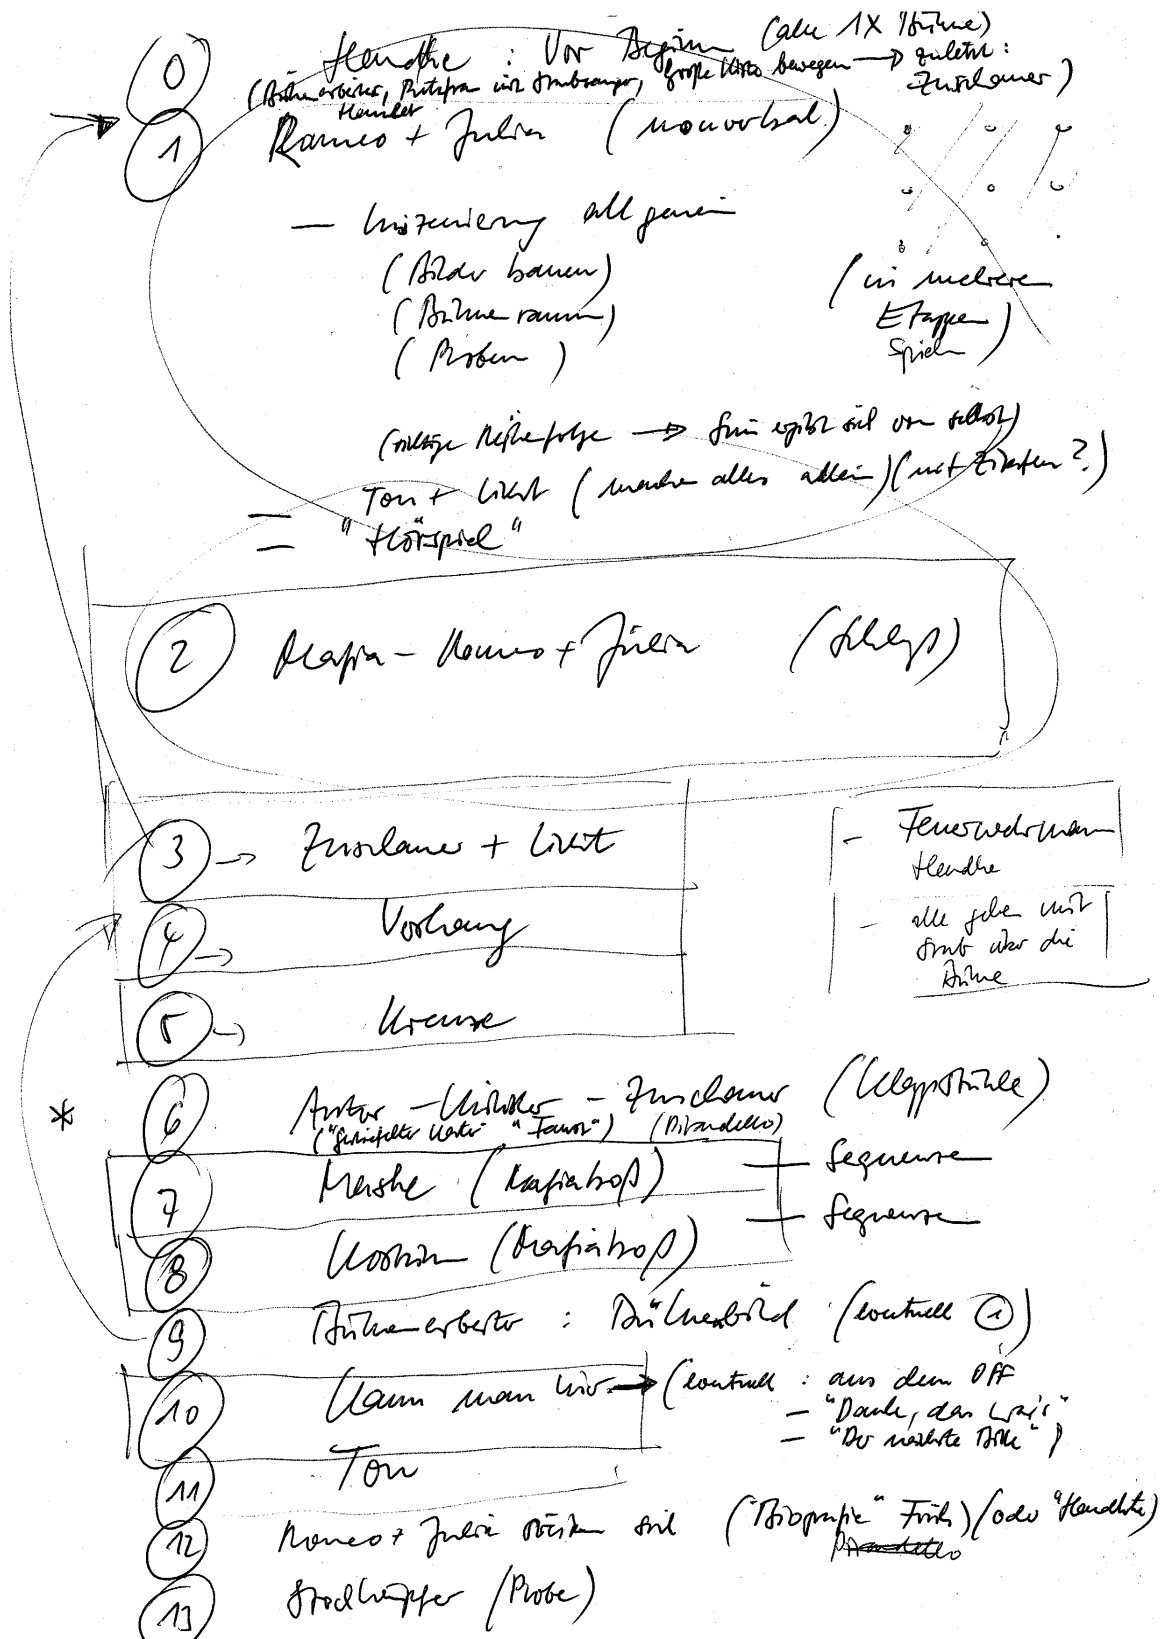 0 Handke : Vor Beginn (alle 1X Bühne)
(Bühnenarbeiter, Putzfrau mit Staubsauger, große Kiste bewegen → zuletzt : Zuschauer)
Hamlet
1 Romeo + Julia (nonverbal)
— Inszenierung allgemein
(Bilder bauen)
(Bühnenraum)
(Proben)
(in mehreren
Etappen
spielen)
(richtige Reihenfolge → Sinn ergibt sich von selbst)
Ton + Licht (machen alles allein) (mit ?)
"Hörspiel"
2 Mafia – Romeo + Julia (Schluß)
3 → Zuschauer + Licht
4 → Vorhang
5 → Kreuze
– Feuerwehrmann
Handke
– alle gehen mit
über die
Bühne
* 6 Autor – Kritiker – Zuschauer (Klappstühle)
("Gestiefelter Kater" "Faust") (Pirandello)
7 Maske (Mafiaboß) — Sequenze
8 Kostüm (Mafiaboß) — Sequenze
9 Bühnenarbeiter : Bühnenbild (eventuell 1)
10 Kann man hier → (eventuell : aus dem OFF
– "Danke, das war's"
– "Der nächste Bitte")
11 Ton
12 Romeo + Julia sich ("Biografie" Frisch) (oder "Handke")
Pirandello
13 (Probe)